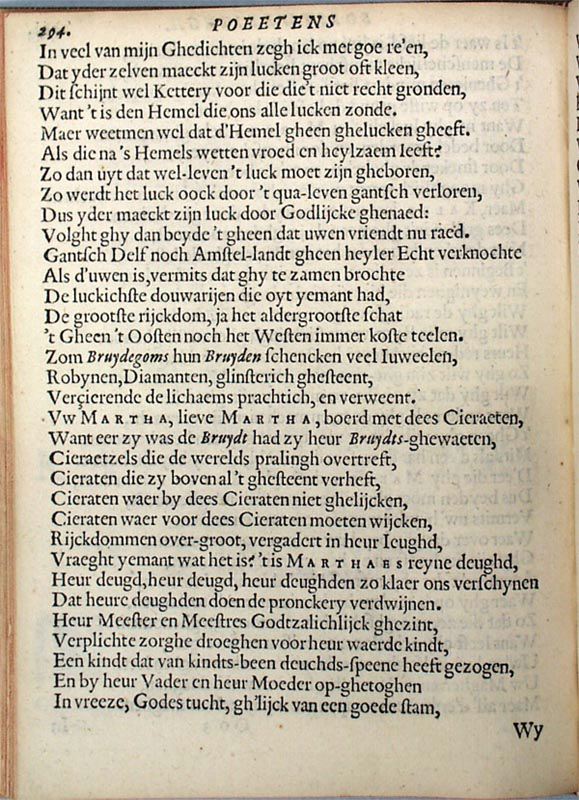 294. POEETENS
In veel van mijn Ghedichten zegh ick met goe re'en,
Dat yder zelven maeckt zijn lucken groot oft kleen,
Dit ſchijnt wel Kettery voor die die't niet recht gronden,
Want 't is den Hemel die ons alle lucken zonde.
Maer weetmen wel dat d'Hemel gheen ghelucken gheeft.
Als die na 's Hemels wetten vroed en heylzaem leeft:
Zo dan uyt dat wel-leven 't luck moet zijn gheboren,
Zo werdt het luck oock door 't qua-leven gantſch verloren,
Dus yder maeckt zijn luck door Godlijcke ghenaed:
Volght ghy dan beyde 't gheen dat uwen vriendt nu raed.
Gantſch Delf noch Amſtel-landt gheen heyler Echt verknochte
Als d'uwen is, vermits dat ghy te zamen brochte
De luckichſte douwarijen die oyt yemant had,
De grootſte rijckdom, ja het aldergrootſte ſchat
't Gheen 't Ooſten noch het Weſten immer koſte teelen.
Zom Bruydegoms hun Bruyden ſchencken veel Iuweelen,
Robynen, Diamanten, glinſterich gheſteent,
Verçierende de lichaems prachtich, en verweent.
Vw MARTHA, lieve MARTHA, boerd met dees Cieraeten,
Want eer zy was de Bruydt had zy heur Bruydts-ghewaeten,
Cieraetzels die de werelds pralingh overtreft,
Cieraten die zy boven al 't gheſteent verheft,
Cieraten waer by dees Cieraten niet ghelijcken,
Cieraten waer voor dees Cieraten moeten wijcken,
Rijckdommen over-groot, vergadert in heur Ieughd,
Vraeght yemant wat het is? 't is MARTHAES reyne deughd,
Heur deugd, heur deugd, heur deughden zo klaer ons verſchynen
Dat heure deughden doen de pronckery verdwijnen.
Heur Meeſter en Meeſtres Godtzalichlijck ghezint,
Verplichte zorghe droeghen voor heur waerde kindt,
Een kindt dat van kindts-been deuchds-ſpeene heeft gezogen,
En by heur Vader en heur Moeder op-ghetoghen
In vreeze, Godes tucht, gh'lijck van een goede ſtam,
Wy